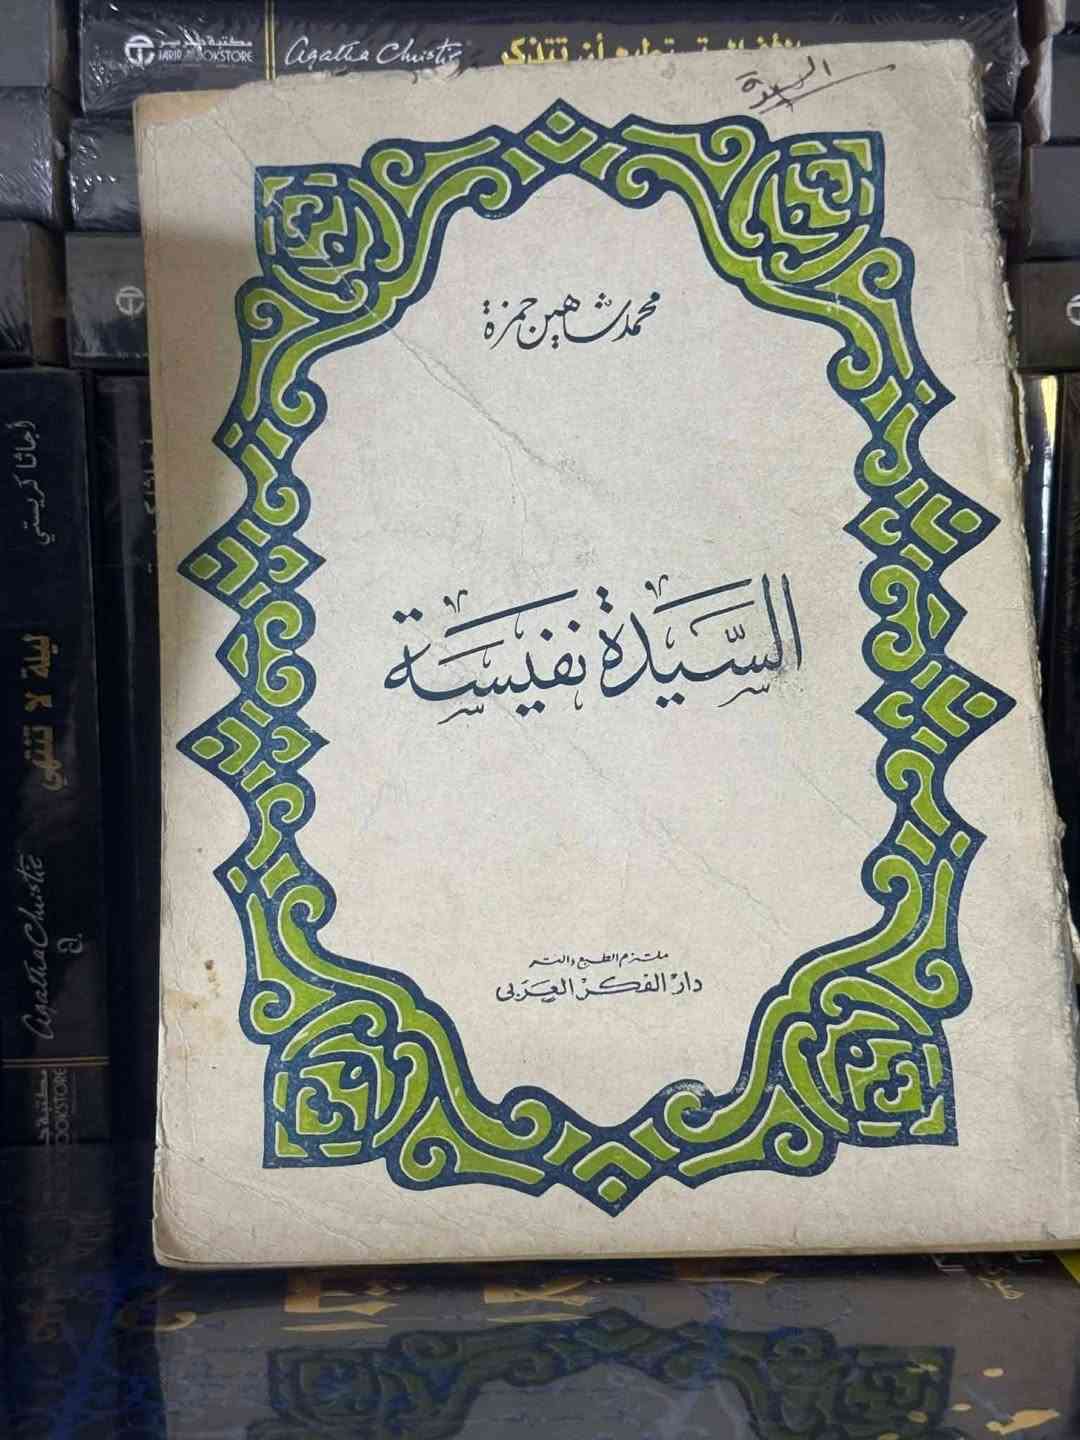 مكتبة جرير
JARIR BOOKSTORE
Agatha Christie
تستطيع أن تتذكر
السيدة
محمد شاهين حمزة
السيدة نفيسة
ملتزم الطبع والنشر
دار الفكر العربى
أجاثا كريستي
ليلة لا تنتهي
Agatha Christie
BOOKSTORE